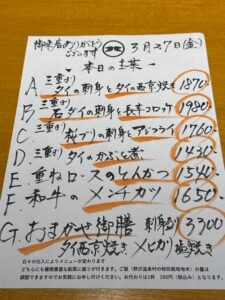 御来店ありがとうございます 3月27日(金)
本日の主菜
A 三重(産) タイの刺身とタイの西京焼き 1870-
B 三重(産) 石ダイの刺身と長芋コロッケ 1980-
C 三重(産) 桜ブリの刺身とアジフライ 1760-
D 三重(産) タイのかぶと煮 1430-
E 重ねロースのとんかつ 1540-
F 和牛のメンチカツ 1650-
G おまかせ御膳 刺身 3300
タイ西京焼き メヒカリ 焼き
日々の仕入によりメニューが変わります